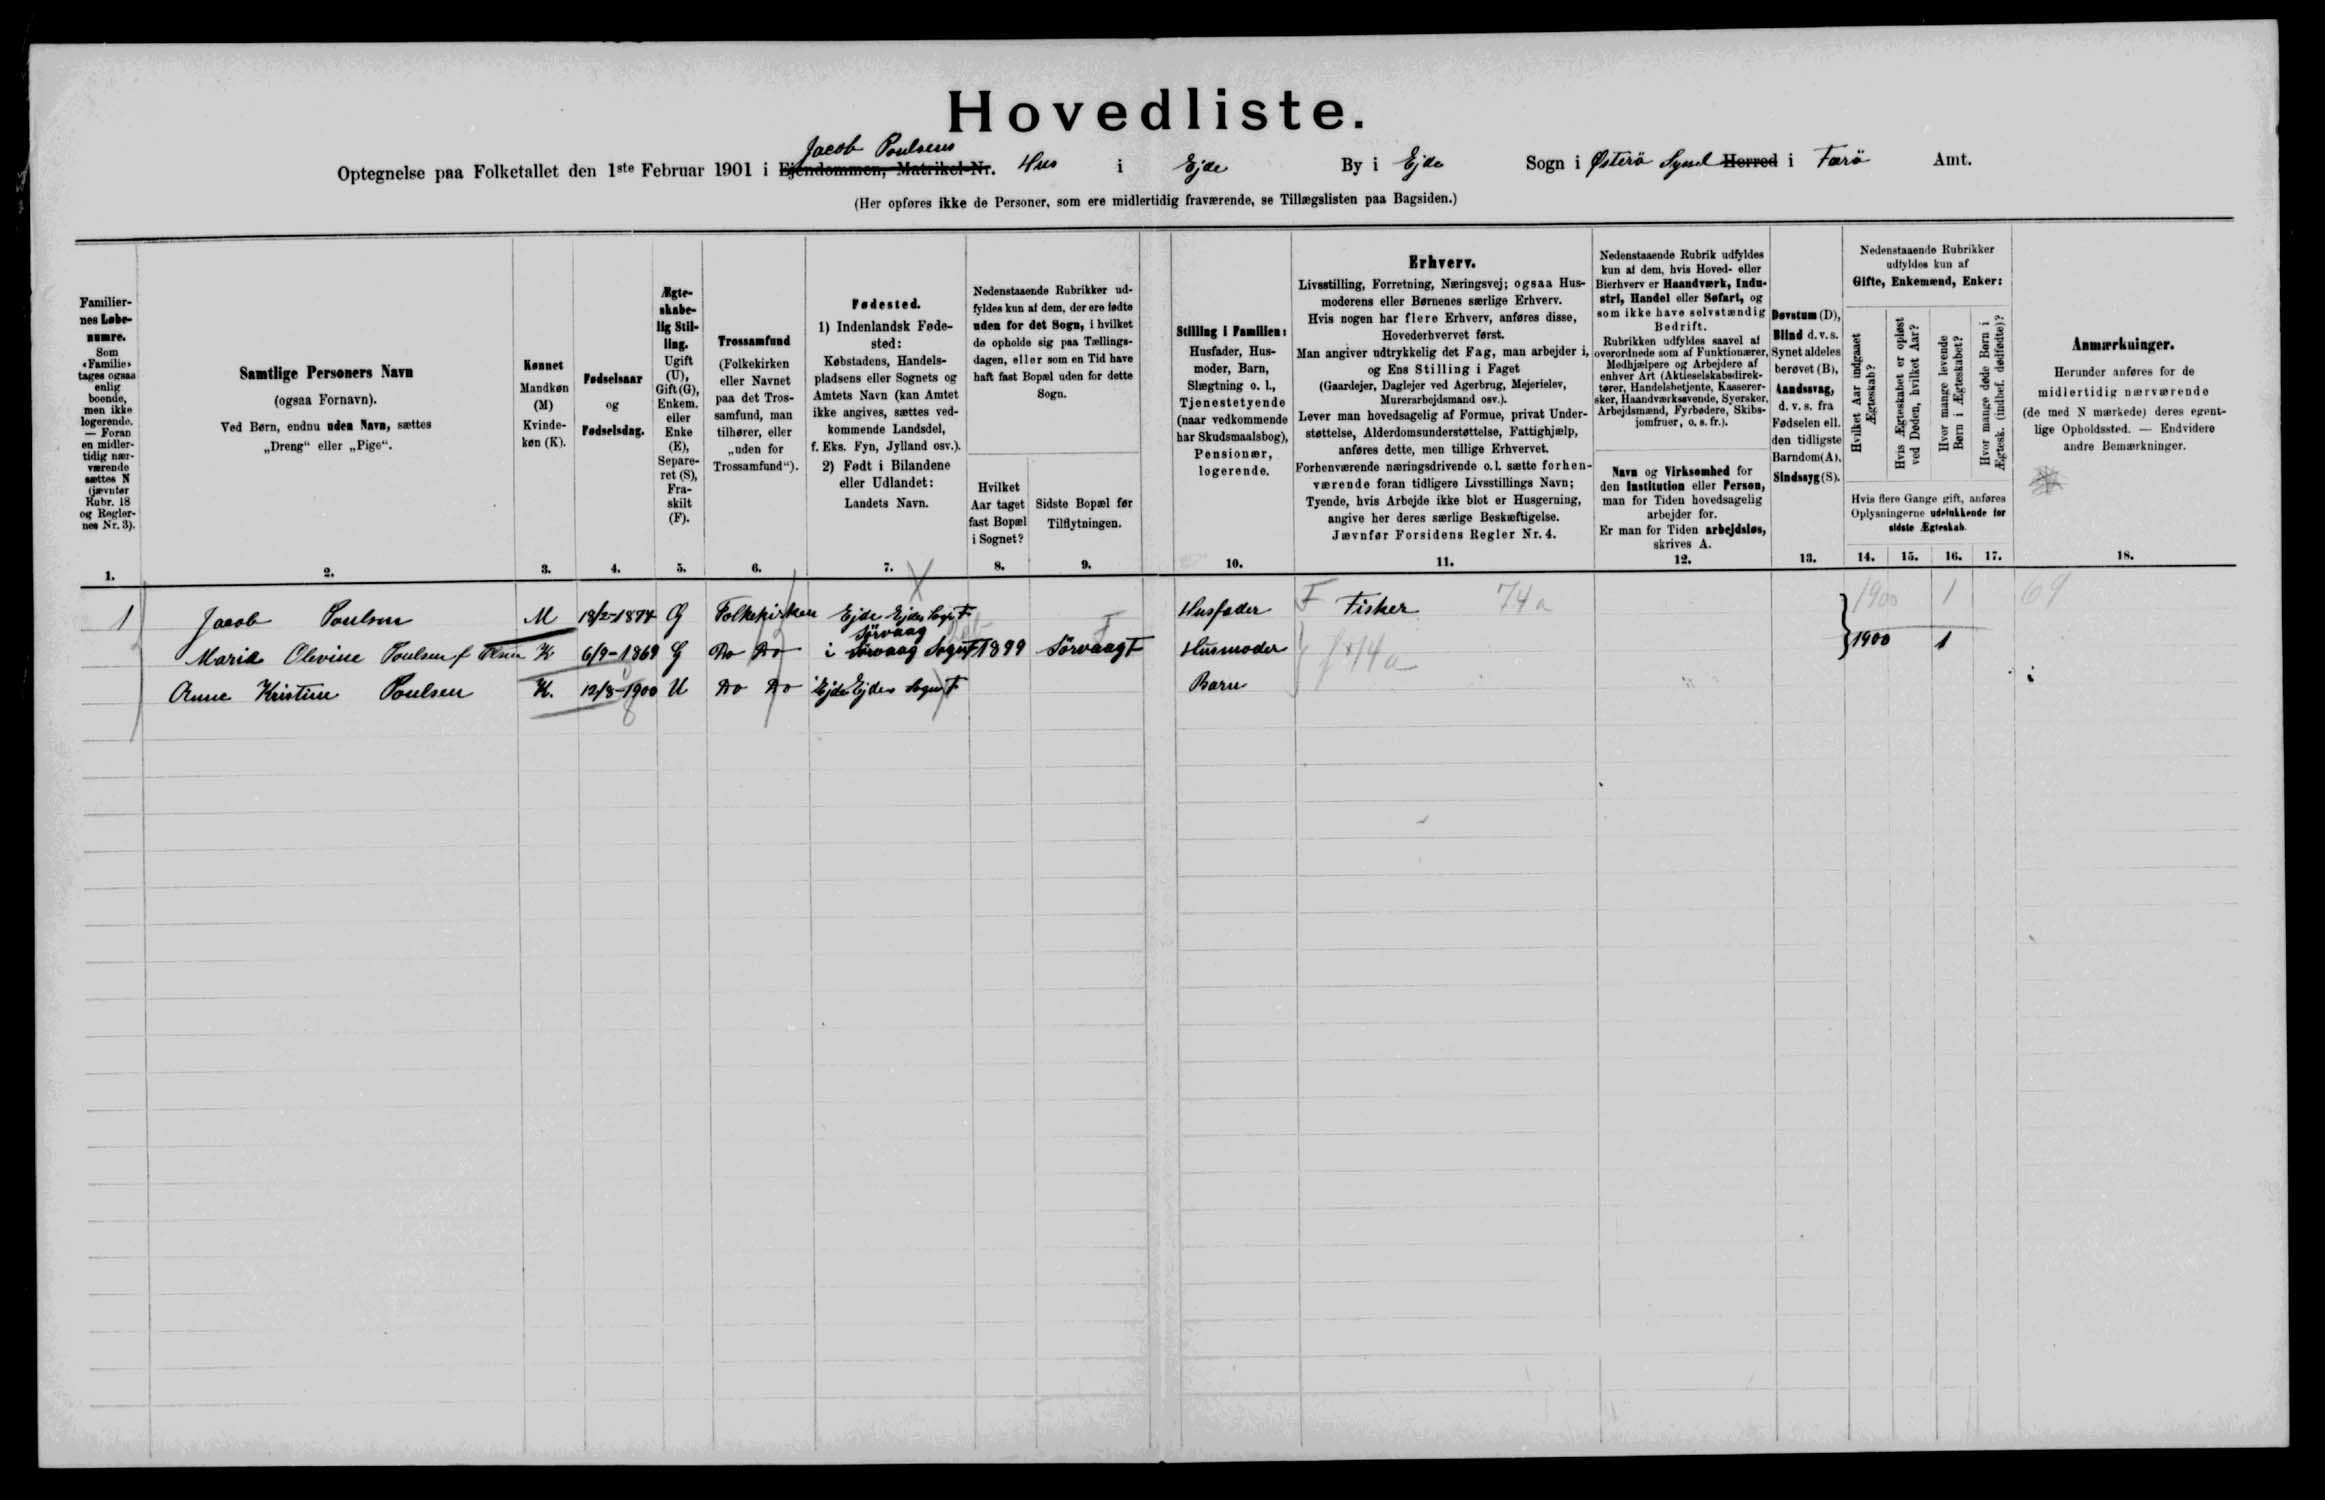 Hovedliste.
Jacob Poulsens
Optegnelse paa Folketallet den 1ste Februar 1901 i Ejendommen, Matrikel-Nr. Hus i Ejde By i Ejde Sogn i Østerö Syssel Herred i Færö Amt.
(Her opføres ikke de Personer, som ere midlertidig fraværende, se Tillægslisten paa Bagsiden.)
Familier-
nes Løbe-
numre.
Som
«Familie»
tages ogsaa
enlig
boende,
men ikke
logerende.
— Foran
en midler-
tidig nær-
værende
sættes N
(jævnfør
Rubr. 18
og Regler-
nes Nr. 3).
1.
Samtlige Personers Navn
(ogsaa Fornavn).
Ved Børn, endnu uden Navn, sættes
„Dreng" eller „Pige".
2.
Kønnet
Mandkøn
(M)
Kvinde-
køn (K).
3.
Fødselsaar
og
Fødselsdag.
4.
Ægte-
skabe-
lig Stil-
ling.
Ugift
(U),
Gift (G),
Enkem.
eller
Enke
(E),
Separe-
ret (S),
Fra-
skilt
(F).
5.
Trossamfund
(Folkekirken
eller Navnet
paa det Tros-
samfund, man
tilhører, eller
„uden for
Trossamfund").
6.
Fødested.
1) Indenlandsk Føde-
sted:
Købstadens, Handels-
pladsens eller Sognets og
Amtets Navn (kan Amtet
ikke angives, sættes ved-
kommende Landsdel,
f. Eks. Fyn, Jylland osv.).
2) Født i Bilandene
eller Udlandet:
Landets Navn.
7.
Nedenstaaende Rubrikker ud-
fyldes kun af dem, der ere fødte
uden for det Sogn, i hvilket
de opholde sig paa Tællings-
dagen, eller som en Tid have
haft fast Bopæl uden for dette
Sogn.
Hvilket
Aar taget
fast Bopæl
i Sognet?
8.
Sidste Bopæl før
Tilflytningen.
9.
Stilling i Familien:
Husfader, Hus-
moder, Barn,
Slægtning o. l.,
Tjenestetyende
(naar vedkommende
har Skudsmaalsbog),
Pensionær,
logerende.
10.
Erhverv.
Livsstilling, Forretning, Næringsvej; ogsaa Hus-
moderens eller Børnenes særlige Erhverv.
Hvis nogen har flere Erhverv, anføres disse,
Hovederhvervet først.
Man angiver udtrykkelig det Fag, man arbejder i,
og Ens Stilling i Faget
(Gaardejer, Daglejer ved Agerbrug, Mejerielev,
Murerarbejdsmand osv.).
Lever man hovedsagelig af Formue, privat Under-
støttelse, Alderdomsunderstøttelse, Fattighjælp,
anføres dette, men tillige Erhvervet.
Forhenværende næringsdrivende o. l. sætte forhen-
værende foran tidligere Livsstillings Navn;
Tyende, hvis Arbejde ikke blot er Husgerning,
angive her deres særlige Beskæftigelse.
Jævnfør Forsidens Regler Nr. 4.
11.
Nedenstaaende Rubrik udfyldes
kun af dem, hvis Hoved- eller
Bierhverv er Haandværk, Indu-
stri, Handel eller Søfart, og
som ikke have selvstændig
Bedrift.
Rubrikken udfyldes saavel af
overordnede som af Funktionærer,
Medhjælpere og Arbejdere af
enhver Art (Aktieselskabsdirek-
tører, Handelsbetjente, Kasserer-
sker, Haandværkssvende, Syersker,
Arbejdsmænd, Fyrbødere, Skibs-
jomfruer, o. s. fr.).
Navn og Virksomhed for
den Institution eller Person,
man for Tiden hovedsagelig
arbejder for.
Er man for Tiden arbejdsløs,
skrives A.
12.
Døvstum (D),
Blind d. v. s.
Synet aldeles
berøvet (B),
Aandssvag,
d. v. s. fra
Fødselen ell.
den tidligste
Barndom (A),
Sindssyg (S).
13.
Nedenstaaende Rubrikker
udfyldes kun af
Gifte, Enkemænd, Enker:
Hvilket Aar indgaaet
Ægteskab?
Hvis Ægteskabet er opløst
ved Døden, hvilket Aar?
Hvor mange levende
Børn i Ægteskabet?
Hvor mange døde Børn i
Ægtesk. (indbef. dødfødte)?
Hvis flere Gange gift, anføres
Oplysningerne udelukkende for
sidste Ægteskab.
14. 15. 16. 17.
Anmærkninger.
Herunder anføres for de
midlertidig nærværende
(de med N mærkede) deres egent-
lige Opholdssted. — Endvidere
andre Bemærkninger.
18.
1 Jacob Poulsen M 18/2-1874 G Folkekirken Ejde Ejdes Sogn F Husfader F Fisker 74a 1900 1 69
Sörvaag
Maria Olevine Poulsen f Olsen K 6/9-1869 G Do Do i Sörvaag Sogn F 1899 Sörvaag F Husmoder 1900 1
Anne Kristine Poulsen K. 12/8-1900 U Do Do Ejde Ejdes Sogn F Barn